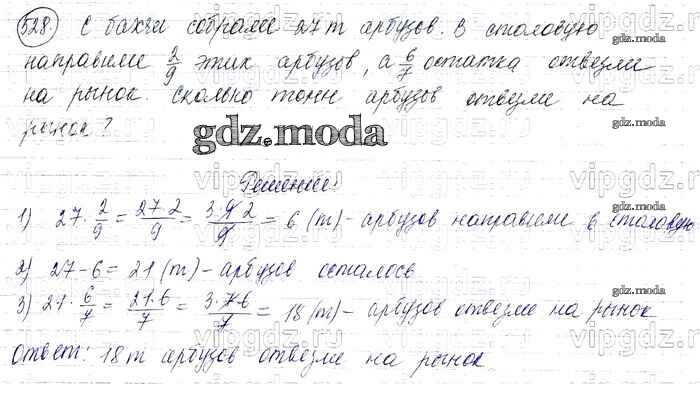 528. С бахчи собрали 27 т арбузов. В столовую
направили 2/9 этих арбузов, а 6/7 остатка отвезли
на рынок. Сколько тонн арбузов отвезли на
рынок?
gdz.moda
gdz.moda
Решение:
1) 27 · 2/9 = 27·2/9 = 3·9·2/9 = 6 (т) - арбузов направили в столовую
2) 27 - 6 = 21 (т) - арбузов осталось
gdz.moda
3) 21 · 6/7 = 21·6/7 = 3·7·6/7 = 18 (т) - арбузов отвезли на рынок
Ответ: 18 т арбузов отвезли на рынок.
gdz.moda
vipgdz.ru